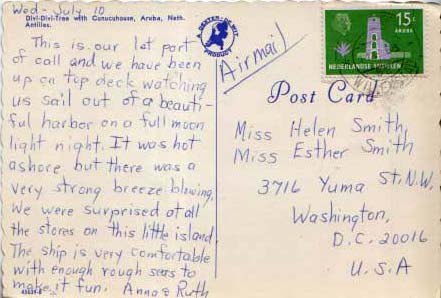 Wed - July 10
Divi-Divi-Tree with Cunucuhouse, Aruba, Neth. Antilles.
This is our 1st port
of call and we have been
up on top deck watching
us sail out of a beauti-
ful harbor on a full moon
light night. It was hot
ashore but there was a
very strong breeze blowing.
We were surprised at all
the stores on this little island.
The ship is very comfortable
with enough rough seas to
make it fun. Anna & Ruth
DEXTER
PRODUCT
Airmail
15c
ARUBA
NEDERLANDSE ANTILLEN
Post Card
Miss Helen Smith
Miss Esther Smith
3716 Yuma St. N.W.
Washington,
D.C. 20016
U.S.A